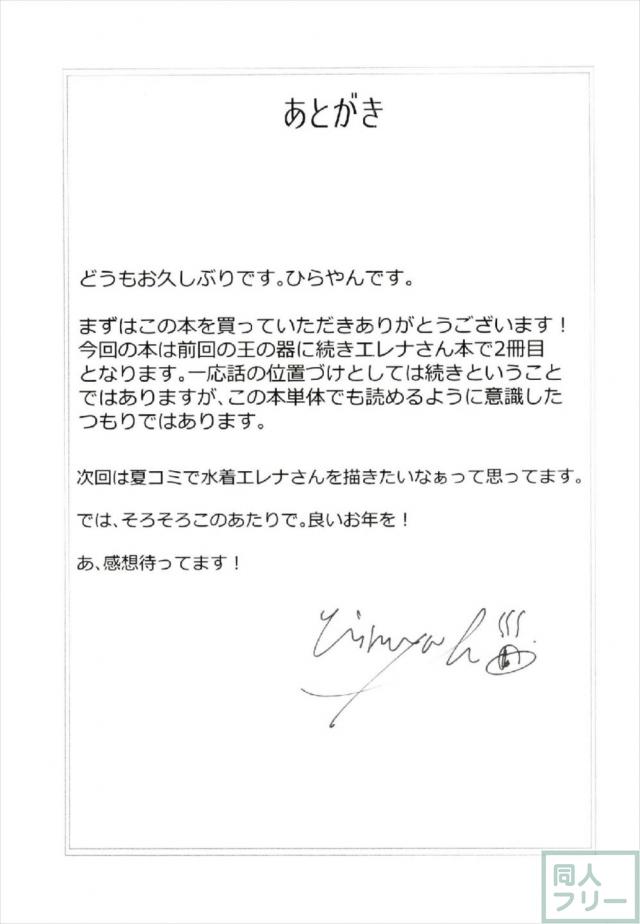 あとがき
どうもお久しぶりです。ひらやんです。
まずはこの本を買っていただきありがとうございます！
今回の本は前回の王の器に続きエレナさん本で2冊目
となります。一応話の位置づけとしては続きということ
ではありますが、この本単体でも読めるように意識した
つもりではあります。
次回は夏コミで水着エレナさんを描きたいなぁって思ってます。
では、そろそろこのあたりで。良いお年を！
あ、感想待ってます！
同人
フリー